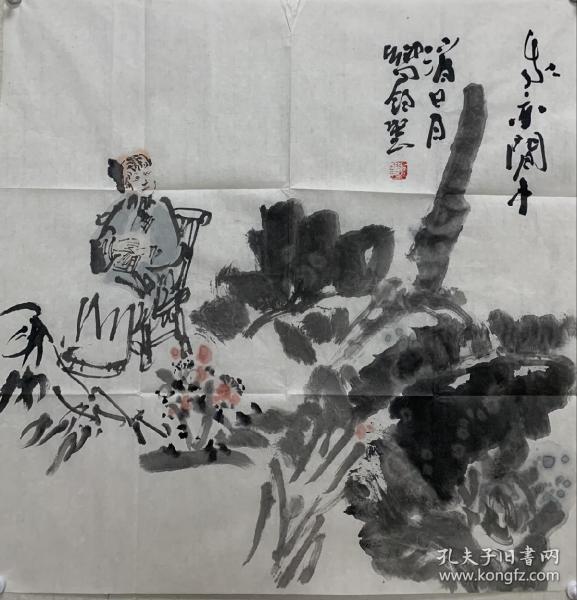 我亦閒中
消日月
孔夫子旧书网
www.kongfz.com